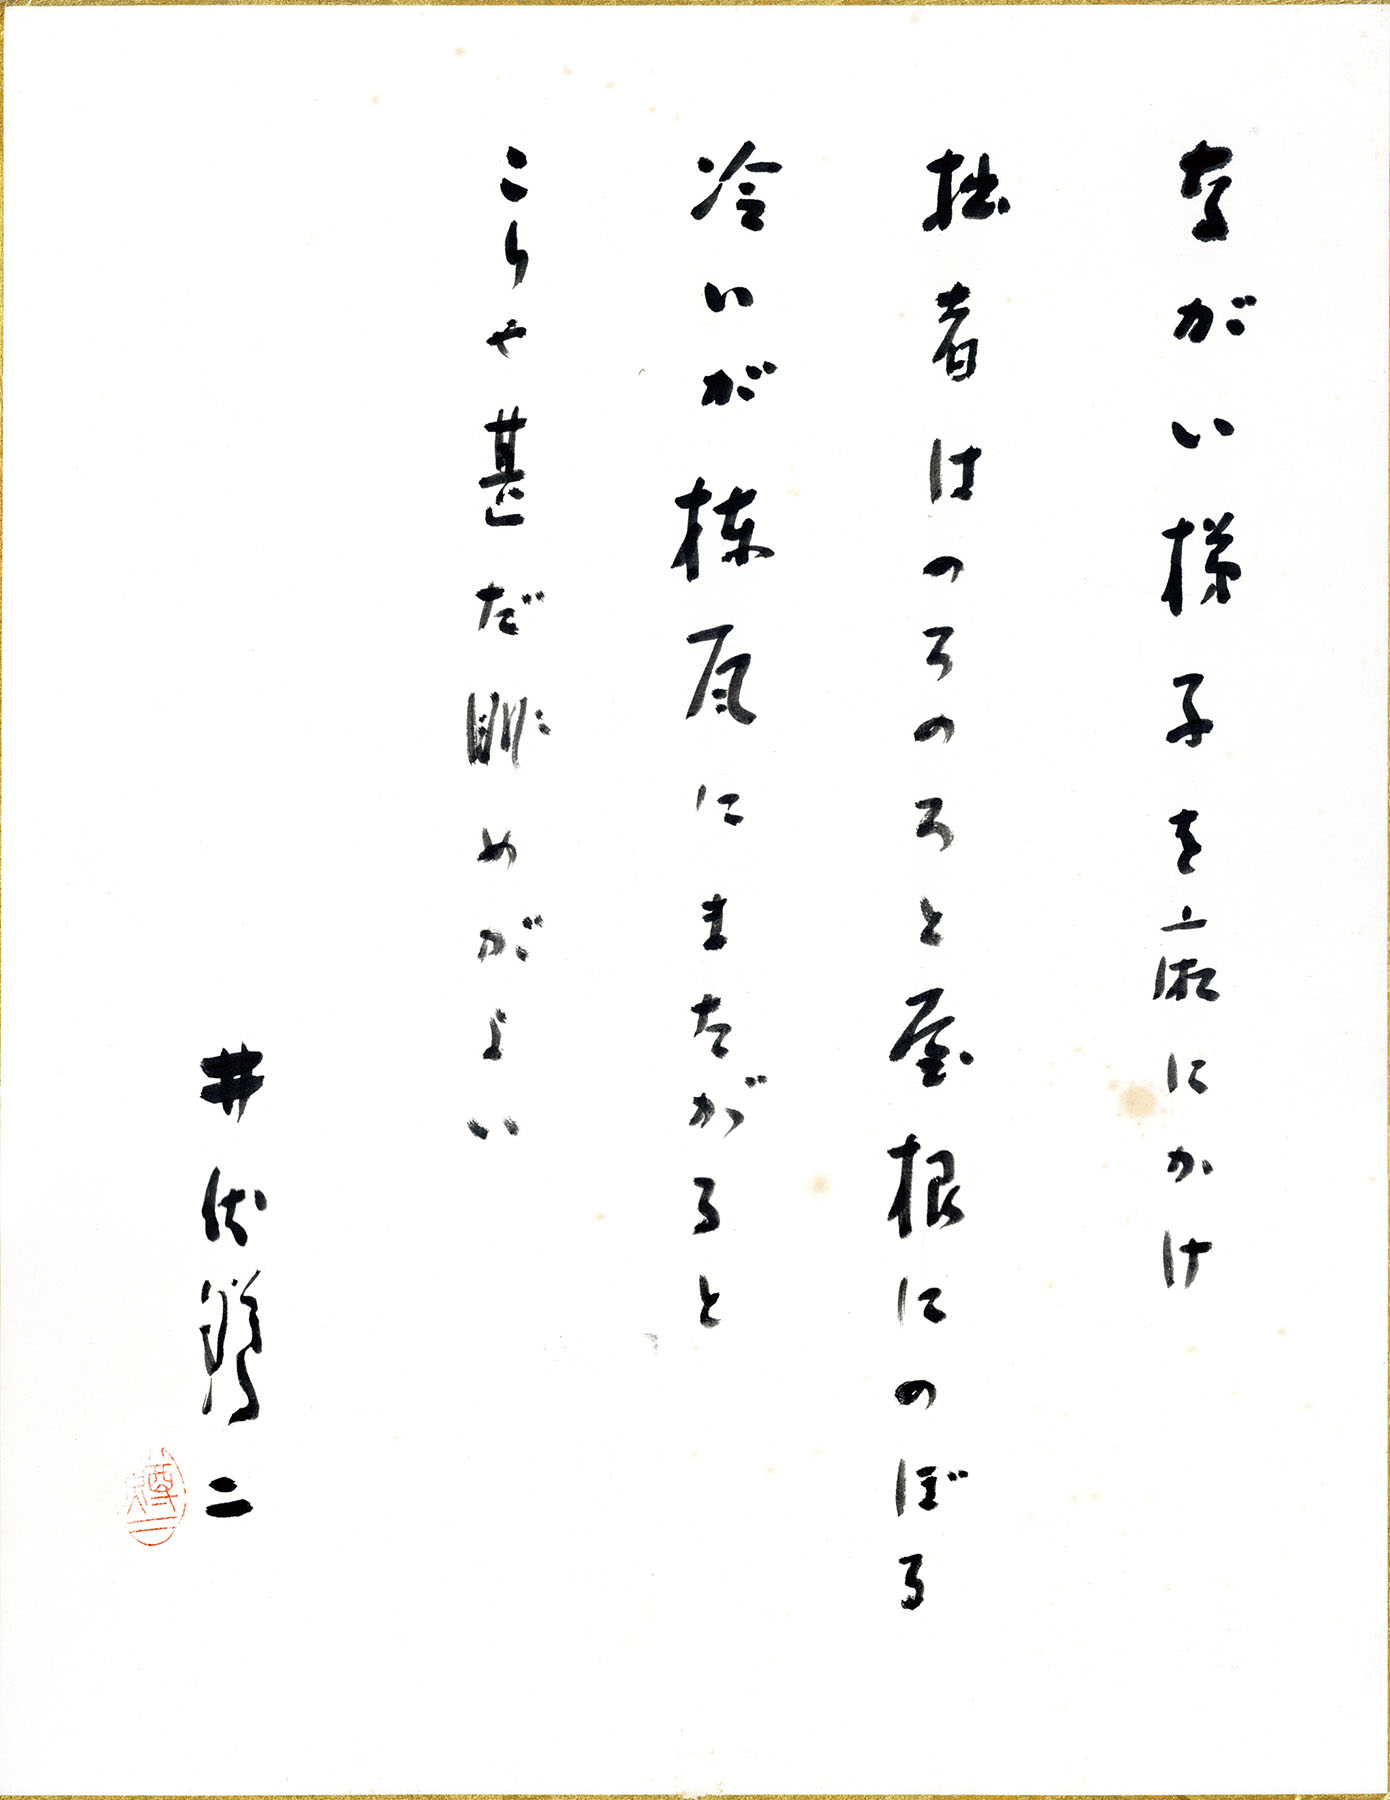 ながい梯子を廂にかけ
拙者はのろのろと屋根にのぼる
冷いが棟瓦にまたがると
こりや甚だ眺めがよい
井伏鱒二
鱒二